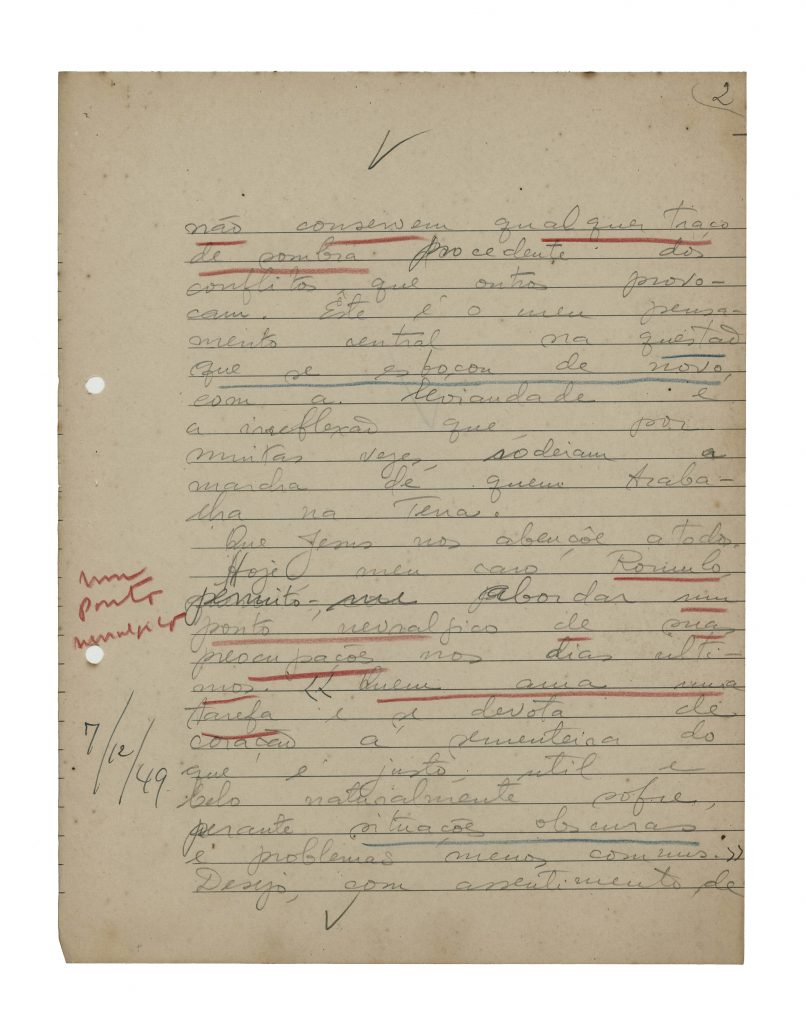 2
não conservem qualquer traço
de sombra procedente dos
conflitos que outros provo-
cam. Êste é o meu pensa-
mento central na questão
que se esboçou de novo,
com a leviandade e
a irreflexão que por
muitas vezes, rodeiam a
marcha de quem traba-
lha na Terra.
Que Jesus nos abençôe a todos.
Hoje meu caro Romulo,
permito-me abordar um
ponto nevralgico de suas
preocupações nos dias ulti-
mos. << Quem ama uma
tarefa e se devota de
coração á sementeira do
que é justo, util e
belo naturalmente sofre,
perante situações obscuras
e problemas menos comuns. >>
Desejo, com assentimento de
um
ponto
nevralgico
7/12/49